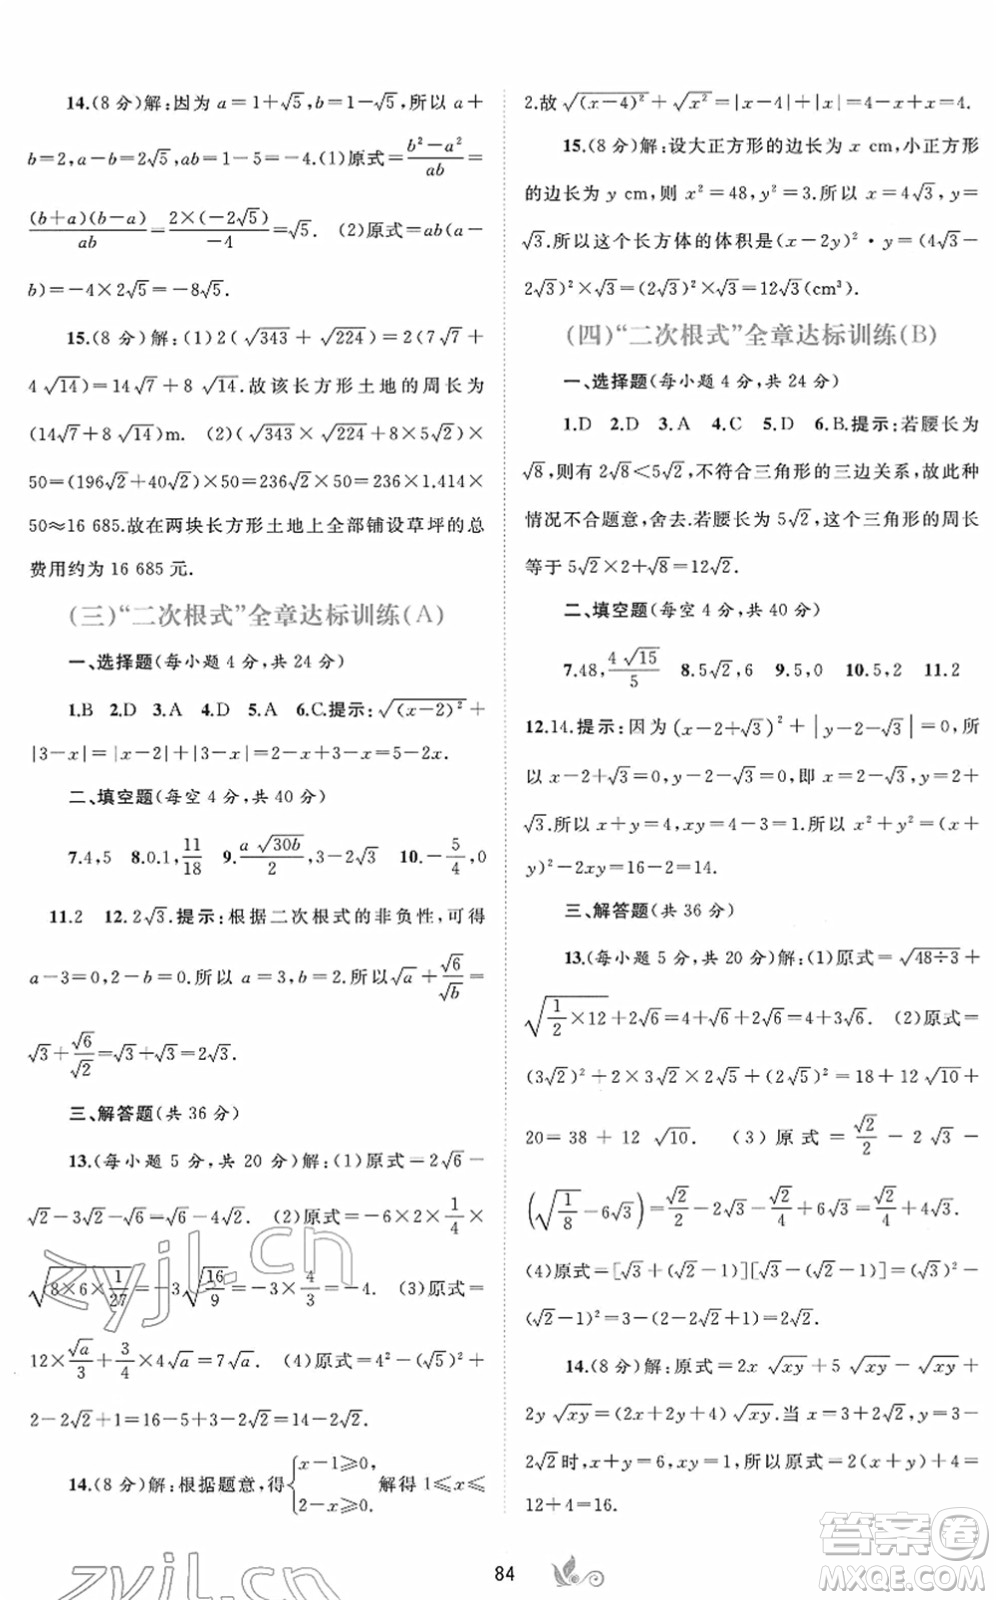 14.(8 分)解:因为 a=1+√5,b=1-√5,所以 a+
b=2,a-b=2√5,ab=1-5=-4.(1)原式=(b²-a²)/ab=
(b+a)(b-a)/ab=2×(-2√5)/-4=√5. (2)原式=ab(a-
b)=-4×2√5=-8√5.
15.(8 分)解:(1)2(√343+√224)=2(7√7+
4√14)=14√7+8√14.故该长方形土地的周长为
(14√7+8√14)m. (2)(√343×√224+8×5√2)×
50=(196√2+40√2)×50=236√2×50≈236×1.414×
50≈16 685.故在两块长方形土地上全部铺设草坪的总
费用约为 16 685 元.
(三)“二次根式”全章达标训练(A)
一、选择题(每小题 4 分,共 24 分)
1.B 2.D 3.A 4.D 5.A 6.C.提示:√(x-2)²+
|3-x|=|x-2|+|3-x|=2-x+3-x=5-2x.
二、填空题(每空 4 分,共 40 分)
7.4,5 8.0.1,11/18 9.a√30b/2,3-2√3 10.-5/4,0
11.2 12.2√3.提示:根据二次根式的非负性,可得
a-3=0,2-b=0.所以 a=3,b=2.所以√a+√6/√b=
√3+√6/√2=√3+√3=2√3.
三、解答题(共 36 分)
13.(每小题 5 分,共 20 分)解:(1)原式=2√6-
√2-3√2-√6=√6-4√2. (2)原式=-6×2×1/4×
√(8×6×1/27)=-3√(16/9)=-3×4/3=-4. (3)原式=
12×√a/3+3/4×4√a=7√a. (4)原式=4²-(√5)²+
2-2√2+1=16-5+3-2√2=14-2√2.
14.(8 分)解:根据题意,得{x-1≥0, 2-x≥0. 解得 1≤x≤
2.故√(x-4)²+√x²=|x-4|+|x|=4-x+x=4.
15.(8 分)解:设大正方形的边长为 x cm,小正方形
的边长为 y cm,则 x²=48,y²=3.所以 x=4√3,y=
√3.所以这个长方体的体积是(x-2y)²·y=(4√3-
2√3)²×√3=(2√3)²×√3=12√3(cm³).
(四)“二次根式”全章达标训练(B)
一、选择题(每小题 4 分,共 24 分)
1.D 2.D 3.A 4.C 5.D 6.B.提示:若腰长为
√8,则有 2√8<5√2,不符合三角形的三边关系,故此种
情况不合题意,舍去.若腰长为 5√2,这个三角形的周长
等于 5√2×2+√8=12√2.
二、填空题(每空 4 分,共 40 分)
7.48,4√15/5 8.5√2,6 9.5,0 10.5,2 11.2
12.14.提示:因为(x-2+√3)²+|y-2-√3|=0,所
以 x-2+√3=0,y-2-√3=0,即 x=2-√3,y=2+
√3.所以 x+y=4,xy=4-3=1.所以 x²+y²=(x+
y)²-2xy=16-2=14.
三、解答题(共 36 分)
13.(每小题 5 分,共 20 分)解:(1)原式=√48÷3+
√(1/2×12)+2√6=4+√6+2√6=4+3√6. (2)原式=
(3√2)²+2×3√2×2√5+(2√5)²=18+12√10+
20=38+12√10. (3)原式=√2/2-2√3-
(√(1/8)-6√3)=√2/2-2√3-√2/4+6√3=√2/4+4√3.
(4)原式=[√3+(√2-1)][√3-(√2-1)]=(√3)²-
(√2-1)²=3-(3-2√2)=2√2.
14.(8 分)解:原式=2x√xy+5√xy-√xy+
2y√xy=(2x+2y+4)√xy.当 x=3+2√2,y=3-
2√2时,x+y=6,xy=1.所以原式=2(x+y)+4=
12+4=16.
84
zyjl.cn
zyjl.cn
答案卷
MXQE.COM